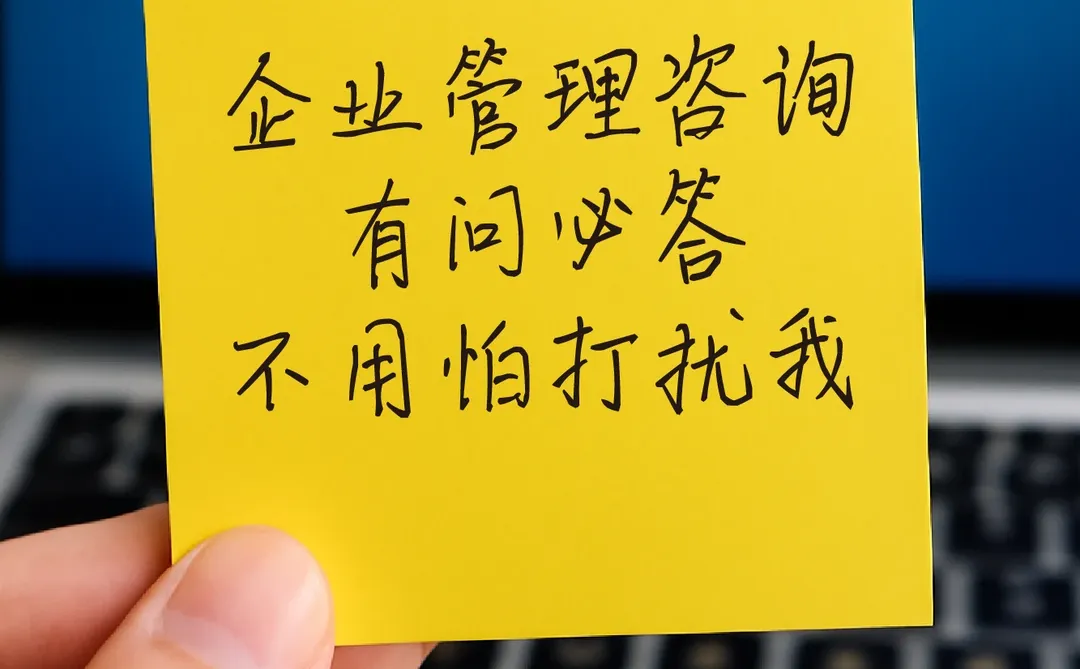 企业管理咨询
有问必答
不用怕打扰我